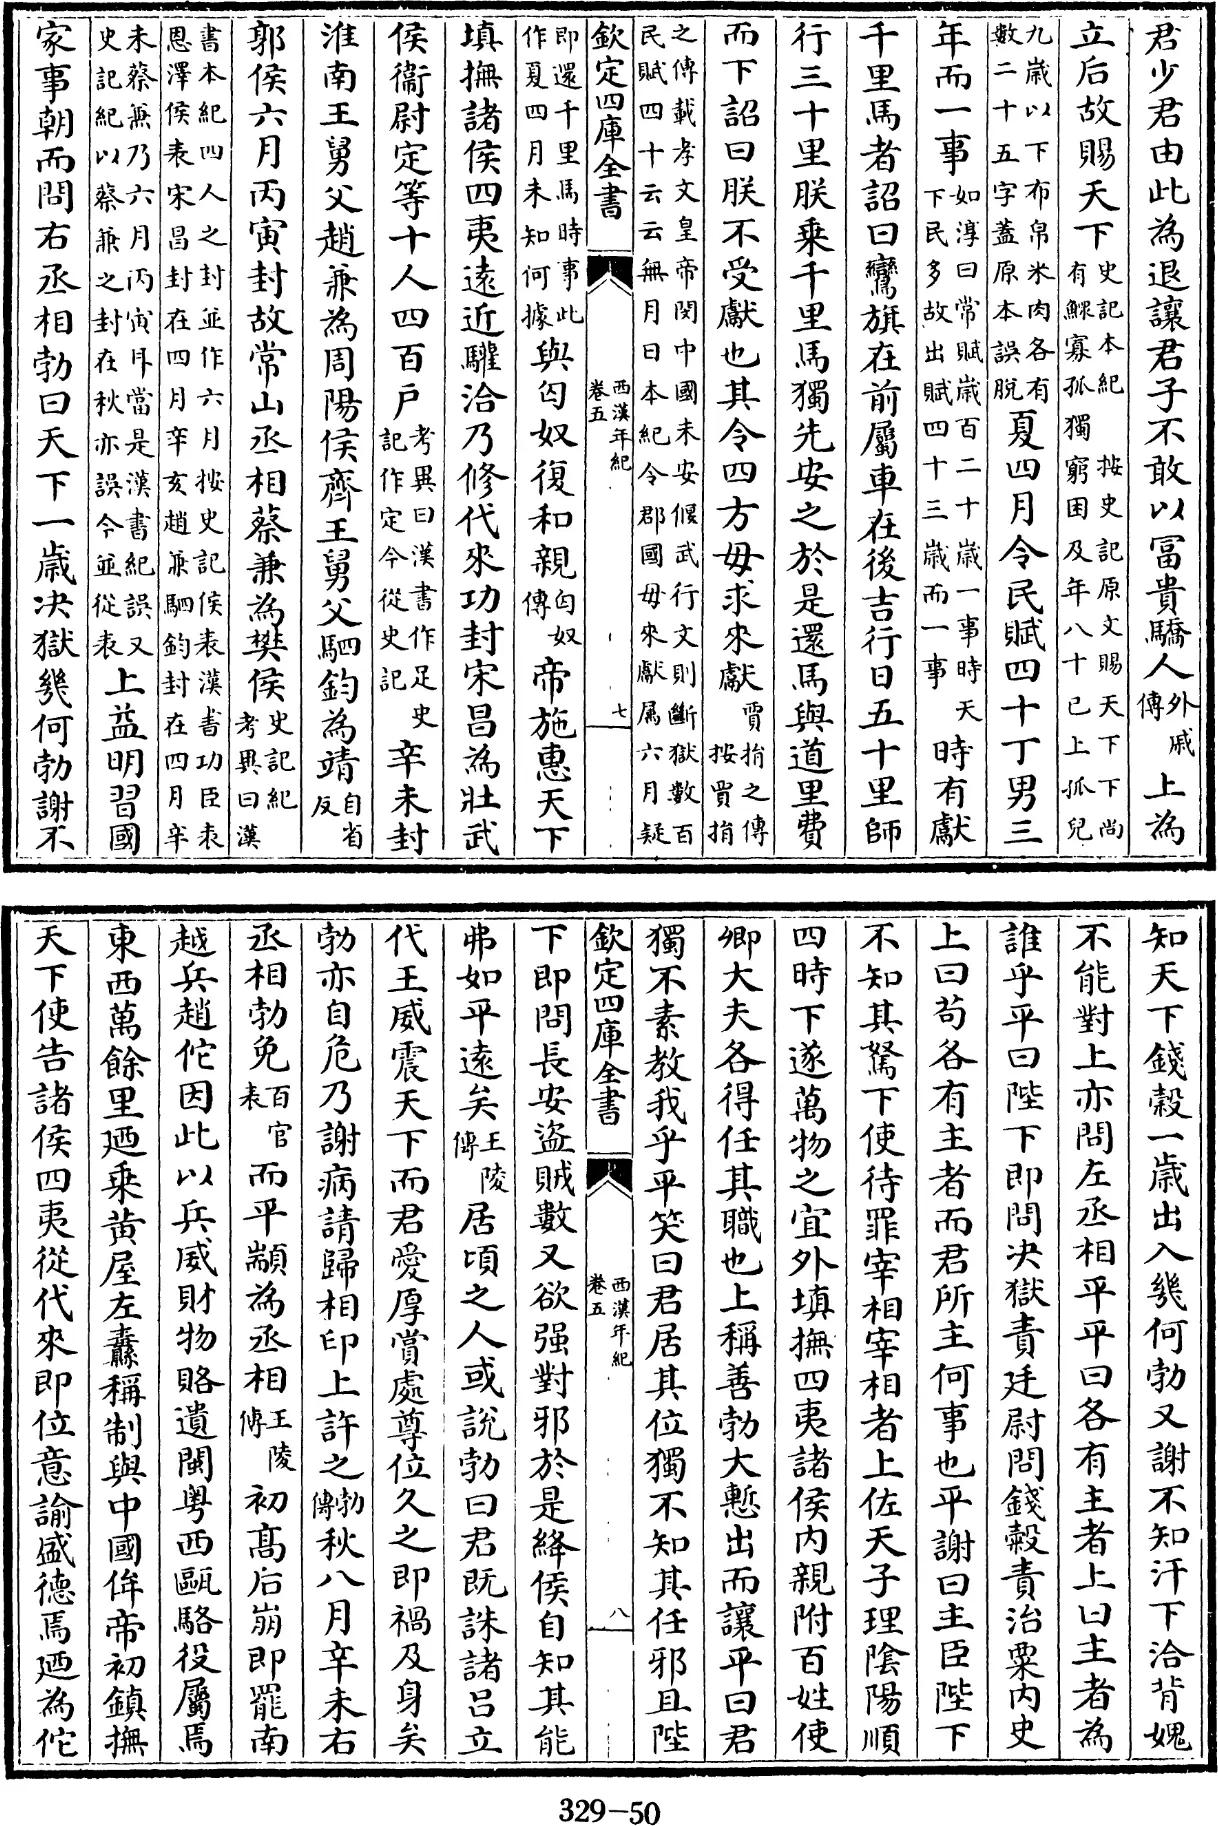 君少君由此為退讓君子不敢以富貴驕人外戚傳上為
立后故賜天下史記本紀按史記原文賜天下下尚有鰥寡孤獨窮困及年八十已上孤兒
九歲以下布帛米肉各有數二十五字蓋原本誤脫夏四月令民賦四十丁男三
年而一事如淳曰常賦歲百二十歲一事時天下民多故出賦四十三歲而一事時有獻
千里馬者詔曰鸞旗在前屬車在後吉行日五十里師
行三十里朕乗千里馬獨先安之於是還馬與道里費
而下詔曰朕不受獻也其令四方毋求來獻賈捐之傳按賈捐
之傳載孝文皇帝閔中國未安偃武行文則斷獄數百民賦四十云云無月日本紀令郡國毋來獻屬六月疑
欽定四庫全書 西漢年紀卷五 七
即還千里馬時事此作夏四月未知何據與匈奴復和親匈奴傳帝施惠天下
填撫諸侯四夷遠近驩洽乃修代來功封宋昌為壯武
侯衞尉定等十人四百户考異曰漢書作足史記作定今從史記辛未封
淮南王舅父趙兼為周陽侯齊王舅父駟鈞為靖自省反
郭侯六月丙寅封故常山丞相蔡兼為樊侯史記紀考異曰漢
書本紀四人之封並作六月按史記侯表漢書功臣表恩澤侯表宋昌封在四月辛亥趙兼駟鈞封在四月辛
未蔡兼乃六月丙寅耳當是漢書紀誤又史記紀以蔡兼之封在秋亦誤今並從表上益明習國
家事朝而問右丞相勃曰天下一歲决獄幾何勃謝不
知天下錢穀一歲出入幾何勃又謝不知汗下洽背媿
不能對上亦問左丞相平平曰各有主者上曰主者為
誰乎平曰陛下即問决獄責廷尉問錢穀責治粟内史
上曰苟各有主者而君所主何事也平謝曰主臣陛下
不知其駑下使待罪宰相宰相者上佐天子理隂陽順
四時下遂萬物之宜外填撫四夷諸侯内親附百姓使
卿大夫各得任其職也上稱善勃大慙出而讓平曰君
獨不素教我乎平笑曰君居其位獨不知其任邪且陛
欽定四庫全書 西漢年紀卷五 八
下即問長安盜賊數又欲强對邪於是絳侯自知其能
弗如平遠矣王陵傳居頃之人或説勃曰君既誅諸吕立
代王威震天下而君受厚賞處尊位久之即禍及身矣
勃亦自危乃謝病請歸相印上許之勃傳秋八月辛未右
丞相勃免百官表而平顓為丞相王陵傳初髙后崩即罷南
越兵趙佗因此以兵威財物賂遺閩粤西甌駱役屬焉
東西萬餘里廼乗黄屋左纛稱制與中國侔帝初鎮撫
天下使告諸侯四夷從代來即位意諭盛德焉廼為佗
329-50